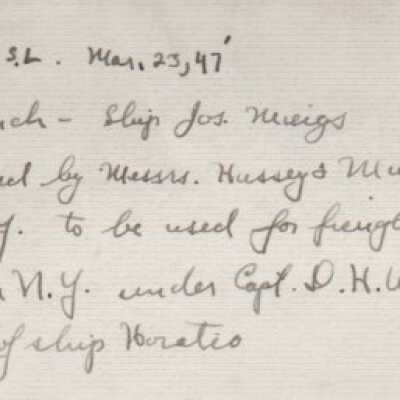 S.L. Mar. 23, 47'
- Ship Jos. Meigs
by Messrs. Hussey &
to be used for
N.Y. under Capt. D. H.
of ship Horatio